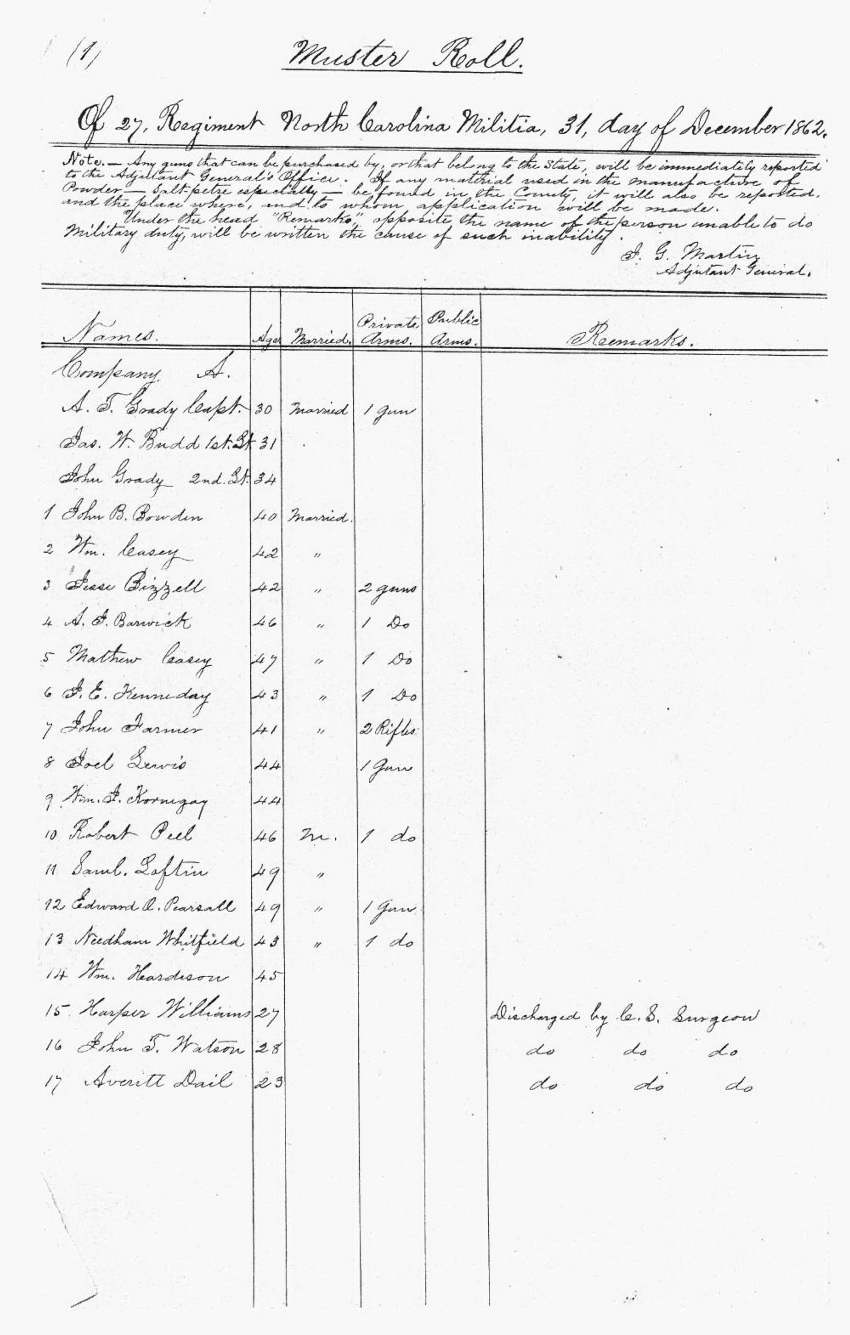 (1)
Muster Roll.
Of 27, Regiment North Carolina Militia, 31, day of December 1862.
Note. — Any guns that can be purchased by, or that belong to the State, will be immediately reported
to the Adjutant General's Office. If any material used in the manufacture of
Powder — Saltpetre especially — be found in the County, it will also be reported.
and the place where, and to whom application will be made.
Under the head "Remarks" opposite the name of the person unable to do
Military duty, will be written the cause of such inability.
J. G. Martin
Adjutant General.
Names. Age Married. Private Arms. Public Arms. Remarks.
Company A.
A. T. Grady Capt. 30 Married 1 gun
Jas. W. Budd 1st. Lt 31
John Grady 2nd. Lt. 34
1 John B. Bowden 40 Married.
2 Wm. Casey 42 "
3 Jesse Bizzell 42 " 2 guns
4 A. J. Barwick 46 " 1 Do
5 Mathew Casey 47 " 1 Do
6 J. E. Kenneday 43 " 1 Do
7 John Farmer 41 " 2 Rifles
8 Joel Lewis 44 1 Gun
9 Wm. J. Kornegay 44
10 Robert Peel 46 M. 1 do
11 Saml. Loftin 49 "
12 Edward A. Pearsall 49 " 1 Gun
13 Needham Whitfield 43 " 1 do
14 Wm. Hardison 45
15 Harper Williams 27 Discharged by C. S. Surgeon
16 John T. Watson 28 do do do
17 Averitt Dail 23 do do do